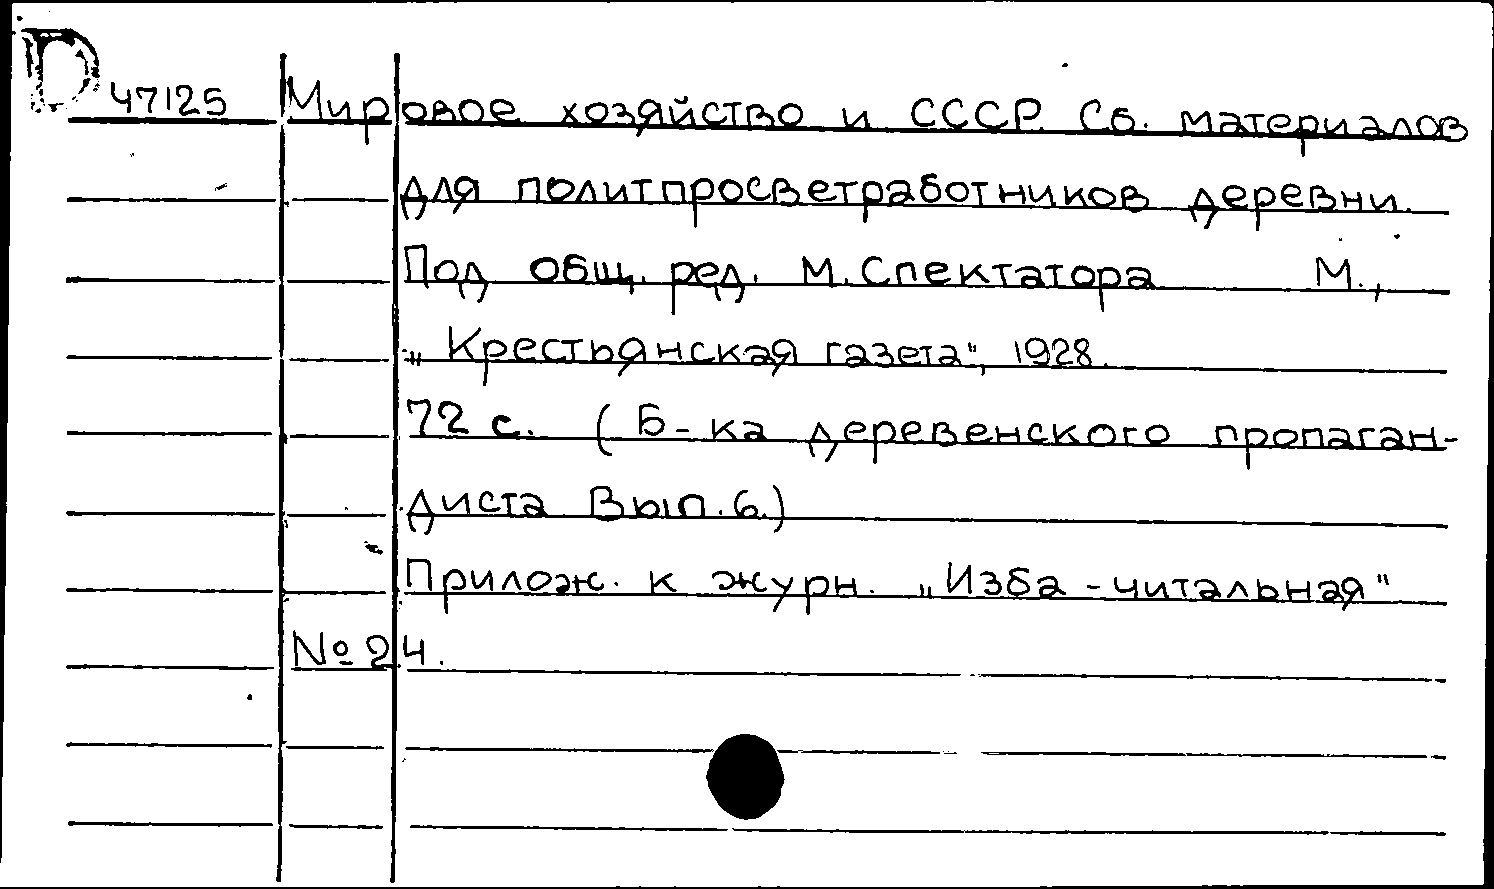 D 47125 Мировое хозяйство и СССР. Сб. материалов
для политпросветработников деревни.
Под общ. ред. М. Спектатора М.,
„Крестьянская газета", 1928.
72 с. (Б-ка деревенского пропаган-
диста Вып. 6.)
Прилож. к журн. „Изба-читальная"
№ 24.